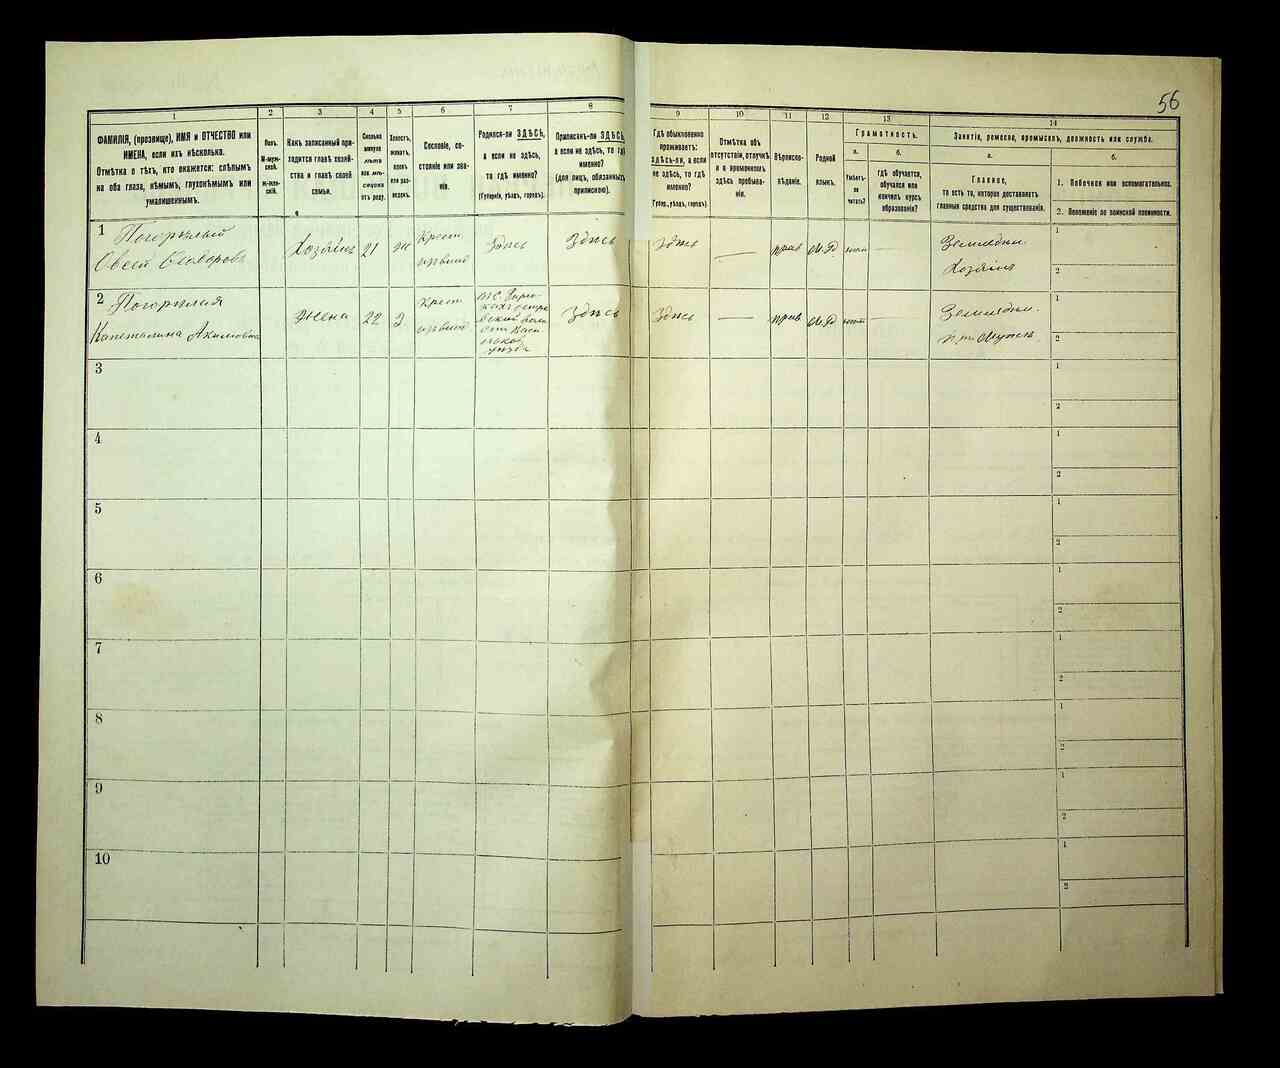 56
1
2
3
4
5
6
7
8
9
10
11
12
13
14
ФАМИЛІЯ, (прозвище), ИМЯ и ОТЧЕСТВО или
ИМЕНА, если ихъ нѣсколько.
Отмѣтка о тѣхъ, кто окажется: слѣпымъ
на оба глаза, нѣмымъ, глухонѣмымъ или
умалишеннымъ.
Полъ.
М-муж-
ской.
ж-жен-
скій.
Какъ записанный при-
ходится главѣ хозяй-
ства и главѣ своей
семьи.
Сколько
минуло
лѣтъ
или мѣ-
сяцевъ
отъ роду.
Холостъ,
женатъ,
вдовъ
или раз-
веденъ.
Сословіе, со-
стояніе или зва-
ніе.
Родился-ли ЗДѢСЬ,
а если не здѣсь,
то гдѣ именно?
(Губернія, уѣздъ, городъ).
Приписанъ-ли ЗДѢСЬ,
а если не здѣсь, то гдѣ
именно?
(для лицъ, обязанныхъ
припискою).
Гдѣ обыкновенно
проживаетъ:
здѣсь-ли, а если
не здѣсь, то гдѣ
именно?
(Губер., уѣздъ, городъ).
Отмѣтка объ
отсутствіи, отлучкѣ
и о временномъ
здѣсь пребыва-
ніи.
Вѣроиспо-
вѣданіе.
Родной
языкъ.
Грамотность.
а.
Умѣетъ-
ли
читать?
б.
гдѣ обучается,
обучался или
кончилъ курсъ
образованія?
Занятіе, ремесло, промыселъ, должность или служба.
а.
Главное,
то есть то, которое доставляетъ
главныя средства для существованія.
б.
1. Побочное или вспомогательное.
2. Положеніе по воинской повинности.
1
Погорѣлый
Хозяинъ 21
Крест
Здѣсь Здѣсь Здѣсь —
прав
—
Земледѣл.
Хозяинъ
1
2
2
Погорѣлая
Капеталина Акимовна
Жена 22 З
Крест
Здѣсь Здѣсь —
прав
—
Земледѣл.
1
2
3
1
2
4
1
2
5
1
2
6
1
2
7
1
2
8
1
2
9
1
2
10
1
2